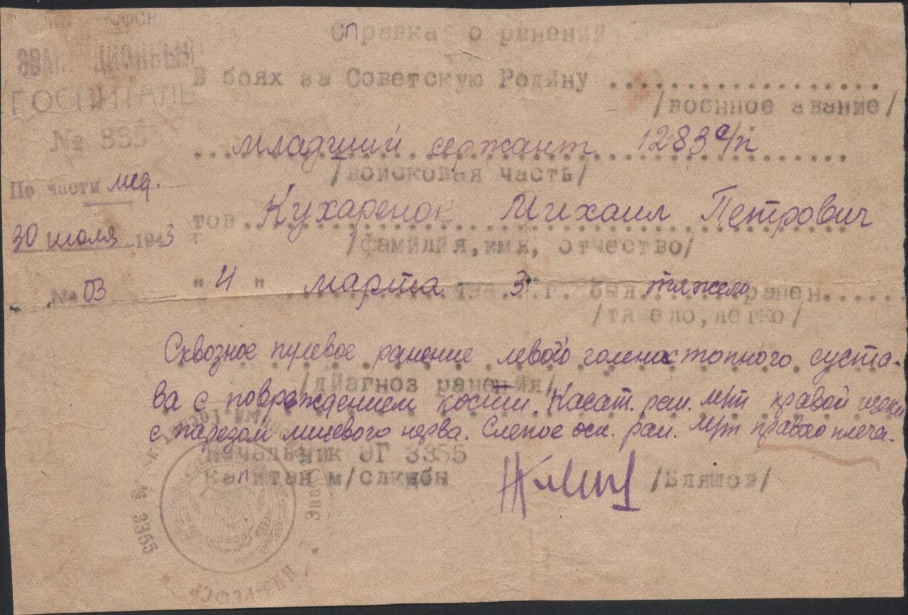 Справка о ранении
ГОСПИТАЛЬ
В боях за Советскую Родину
/военное звание/
№ 3355
младший сержант 1283 с/п
/войсковая часть/
По части мед.
тов. Кухаренок Михаил Петрович
30 июля 1943 г
/фамилия,имя, отчество/
№ 03
"4" марта 1943 г. был тяжело ранен
/тяжело,легко/
Сквозное пулевое ранение левого голеностопного суста-
/диагноз ранения/
ва с повреждением кости. Касат. ран. м/т правой щеки
с парезом лицевого нерва. Слепое оск. ран. м/т правого плеча.
Начальник ЭГ 3355
Капитан м/службы /Бляшов/
№ 3355
НКЗ-РСФСР